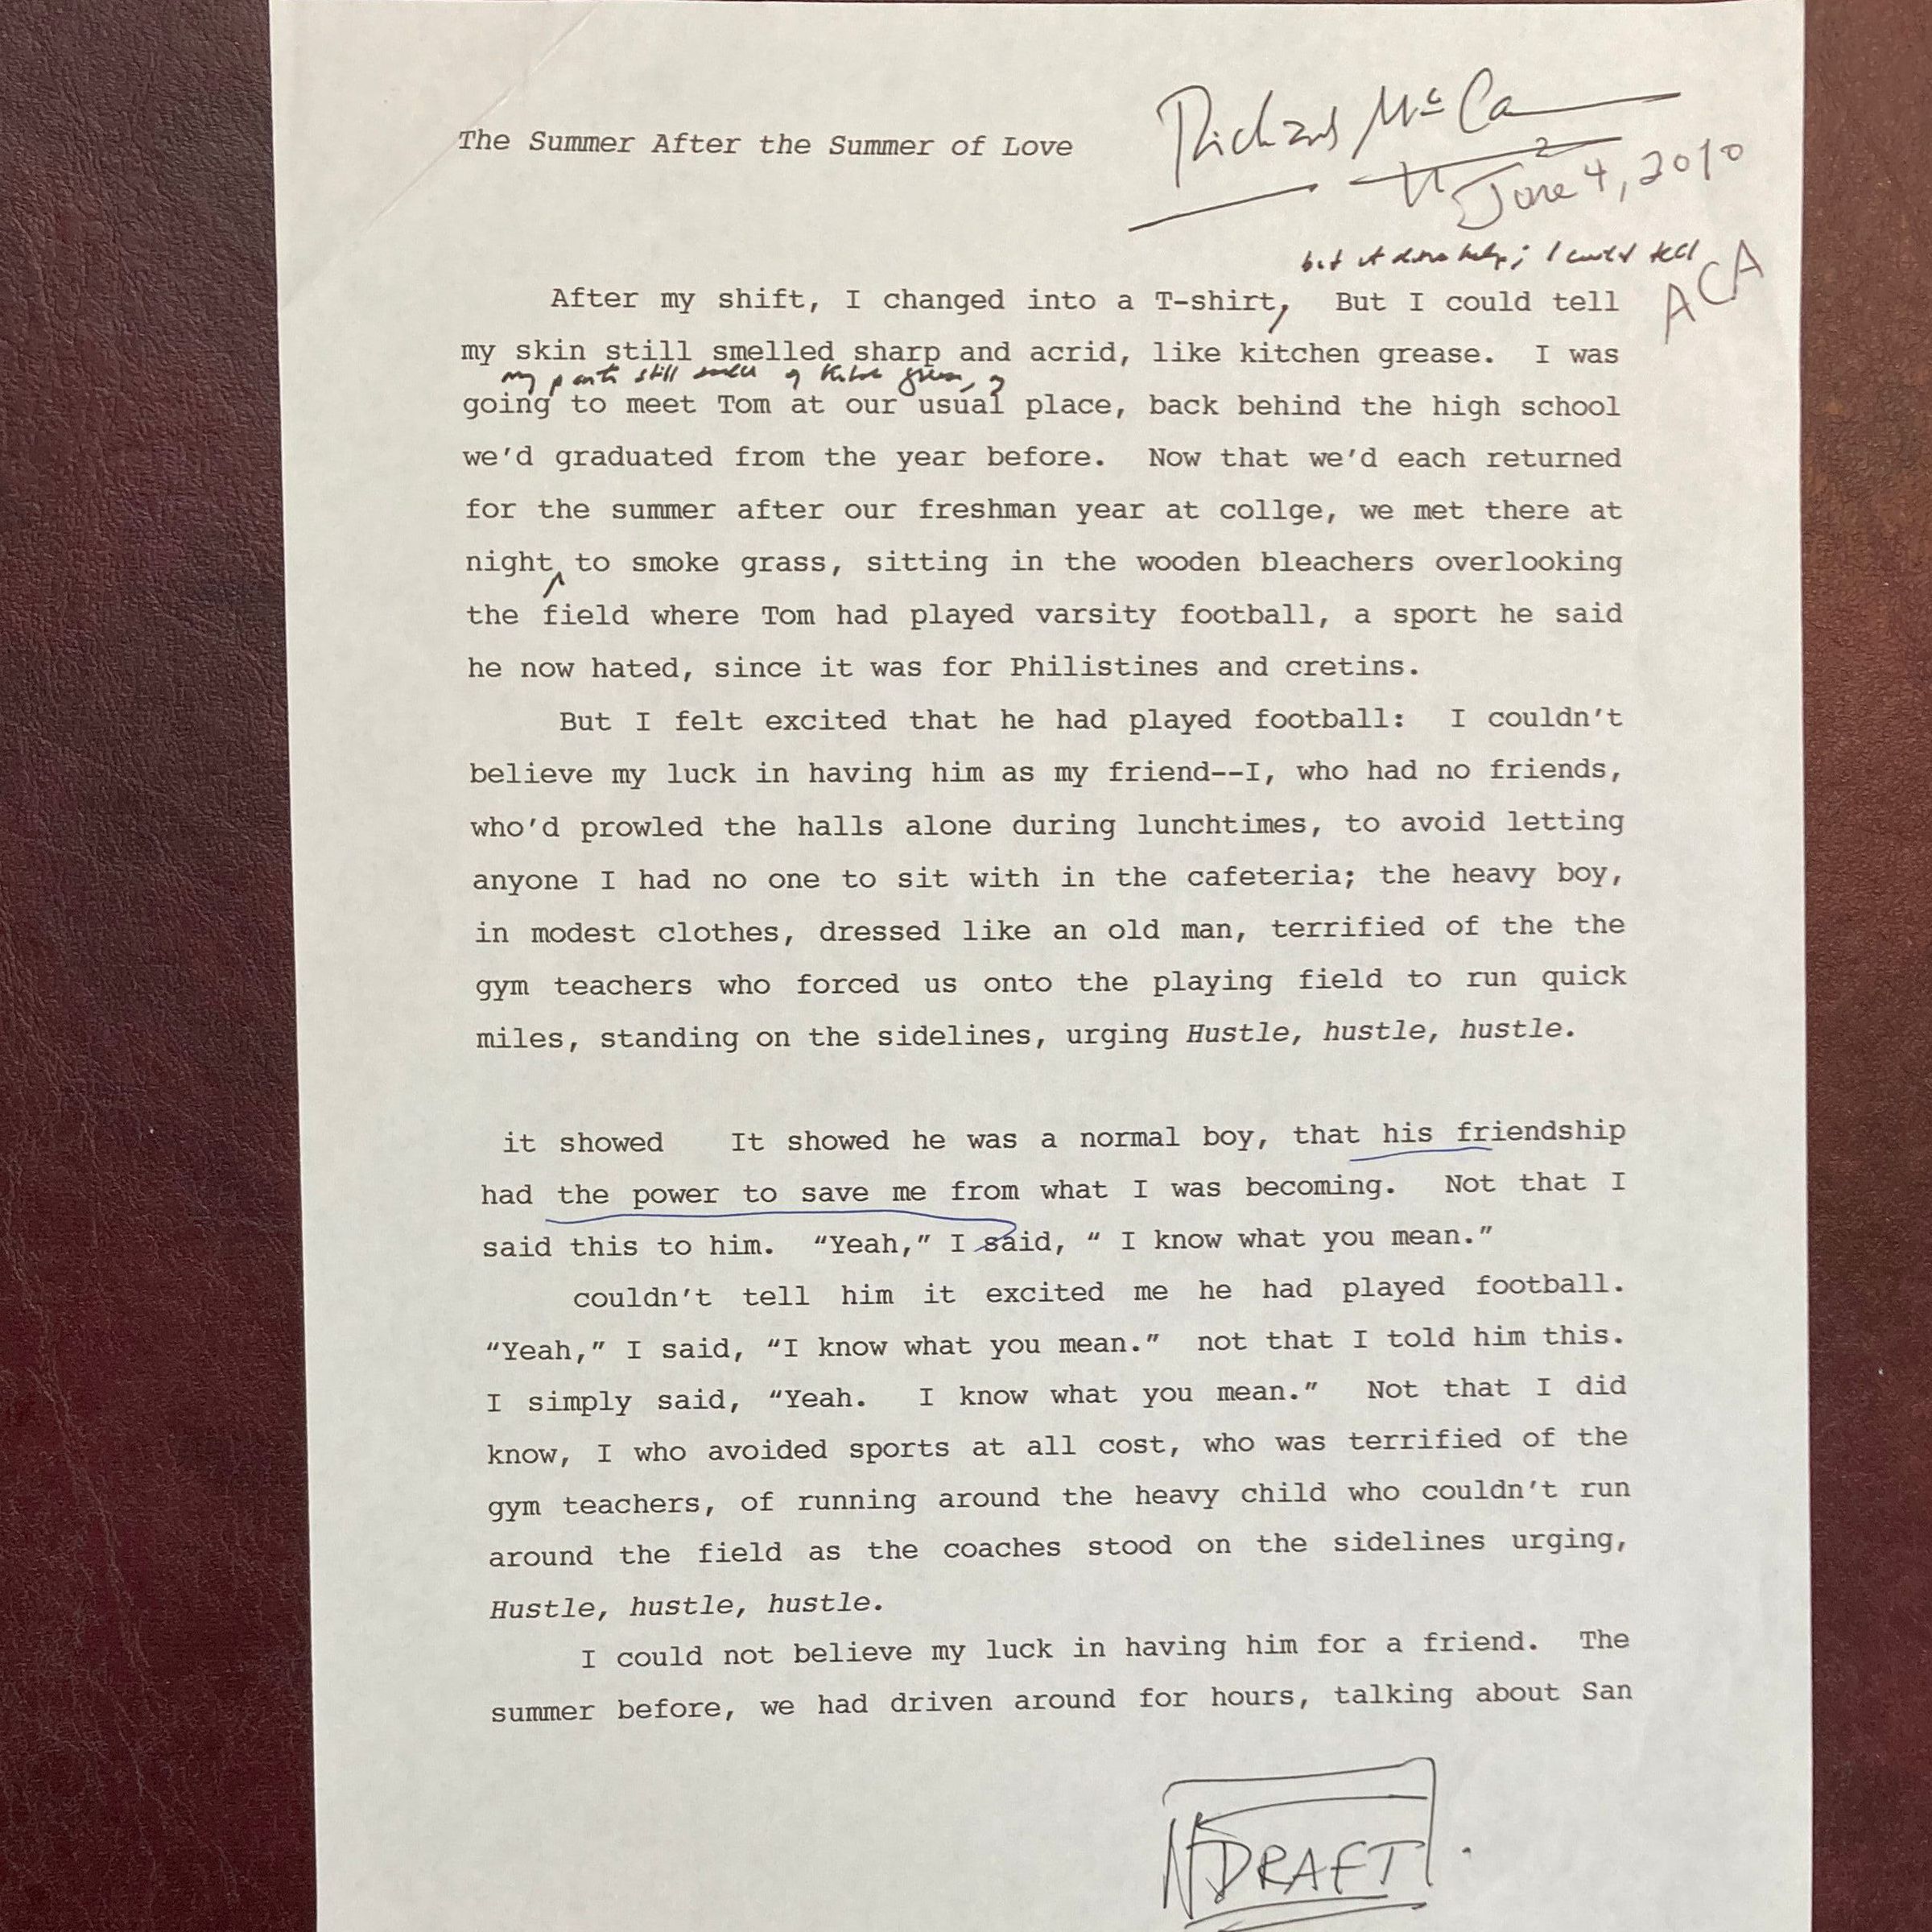 Richard McCa
The Summer After the Summer of Love
June 4, 2010
ACA
but it didn't help; I could tell
After my shift, I changed into a T-shirt, But I could tell
my skin still smelled sharp and acrid, like kitchen grease. I was
my pants still smell of kitchen grease,
going to meet Tom at our usual place, back behind the high school
we'd graduated from the year before. Now that we'd each returned
for the summer after our freshman year at collge, we met there at
night, to smoke grass, sitting in the wooden bleachers overlooking
the field where Tom had played varsity football, a sport he said
he now hated, since it was for Philistines and cretins.
But I felt excited that he had played football: I couldn't
believe my luck in having him as my friend--I, who had no friends,
who'd prowled the halls alone during lunchtimes, to avoid letting
anyone I had no one to sit with in the cafeteria; the heavy boy,
in modest clothes, dressed like an old man, terrified of the the
gym teachers who forced us onto the playing field to run quick
miles, standing on the sidelines, urging Hustle, hustle, hustle.
it showed It showed he was a normal boy, that his friendship
had the power to save me from what I was becoming. Not that I
said this to him. “Yeah,” I said, “ I know what you mean.”
couldn't tell him it excited me he had played football.
“Yeah,” I said, “I know what you mean.” not that I told him this.
I simply said, “Yeah. I know what you mean.” Not that I did
know, I who avoided sports at all cost, who was terrified of the
gym teachers, of running around the heavy child who couldn't run
around the field as the coaches stood on the sidelines urging,
Hustle, hustle, hustle.
I could not believe my luck in having him for a friend. The
summer before, we had driven around for hours, talking about San
DRAFT